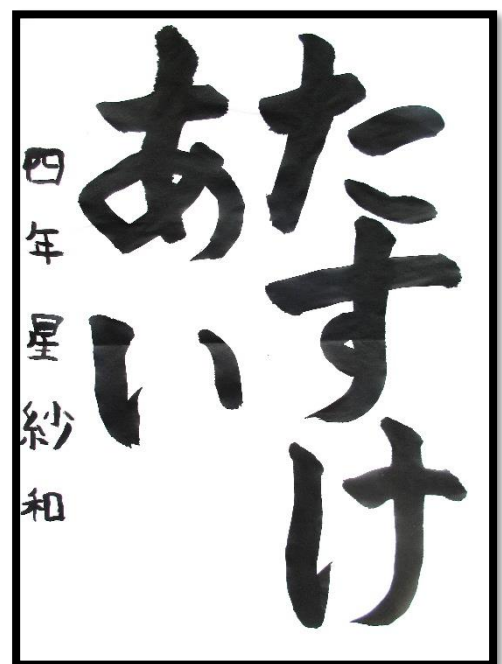 たすけ
あい
四年 星 紗和